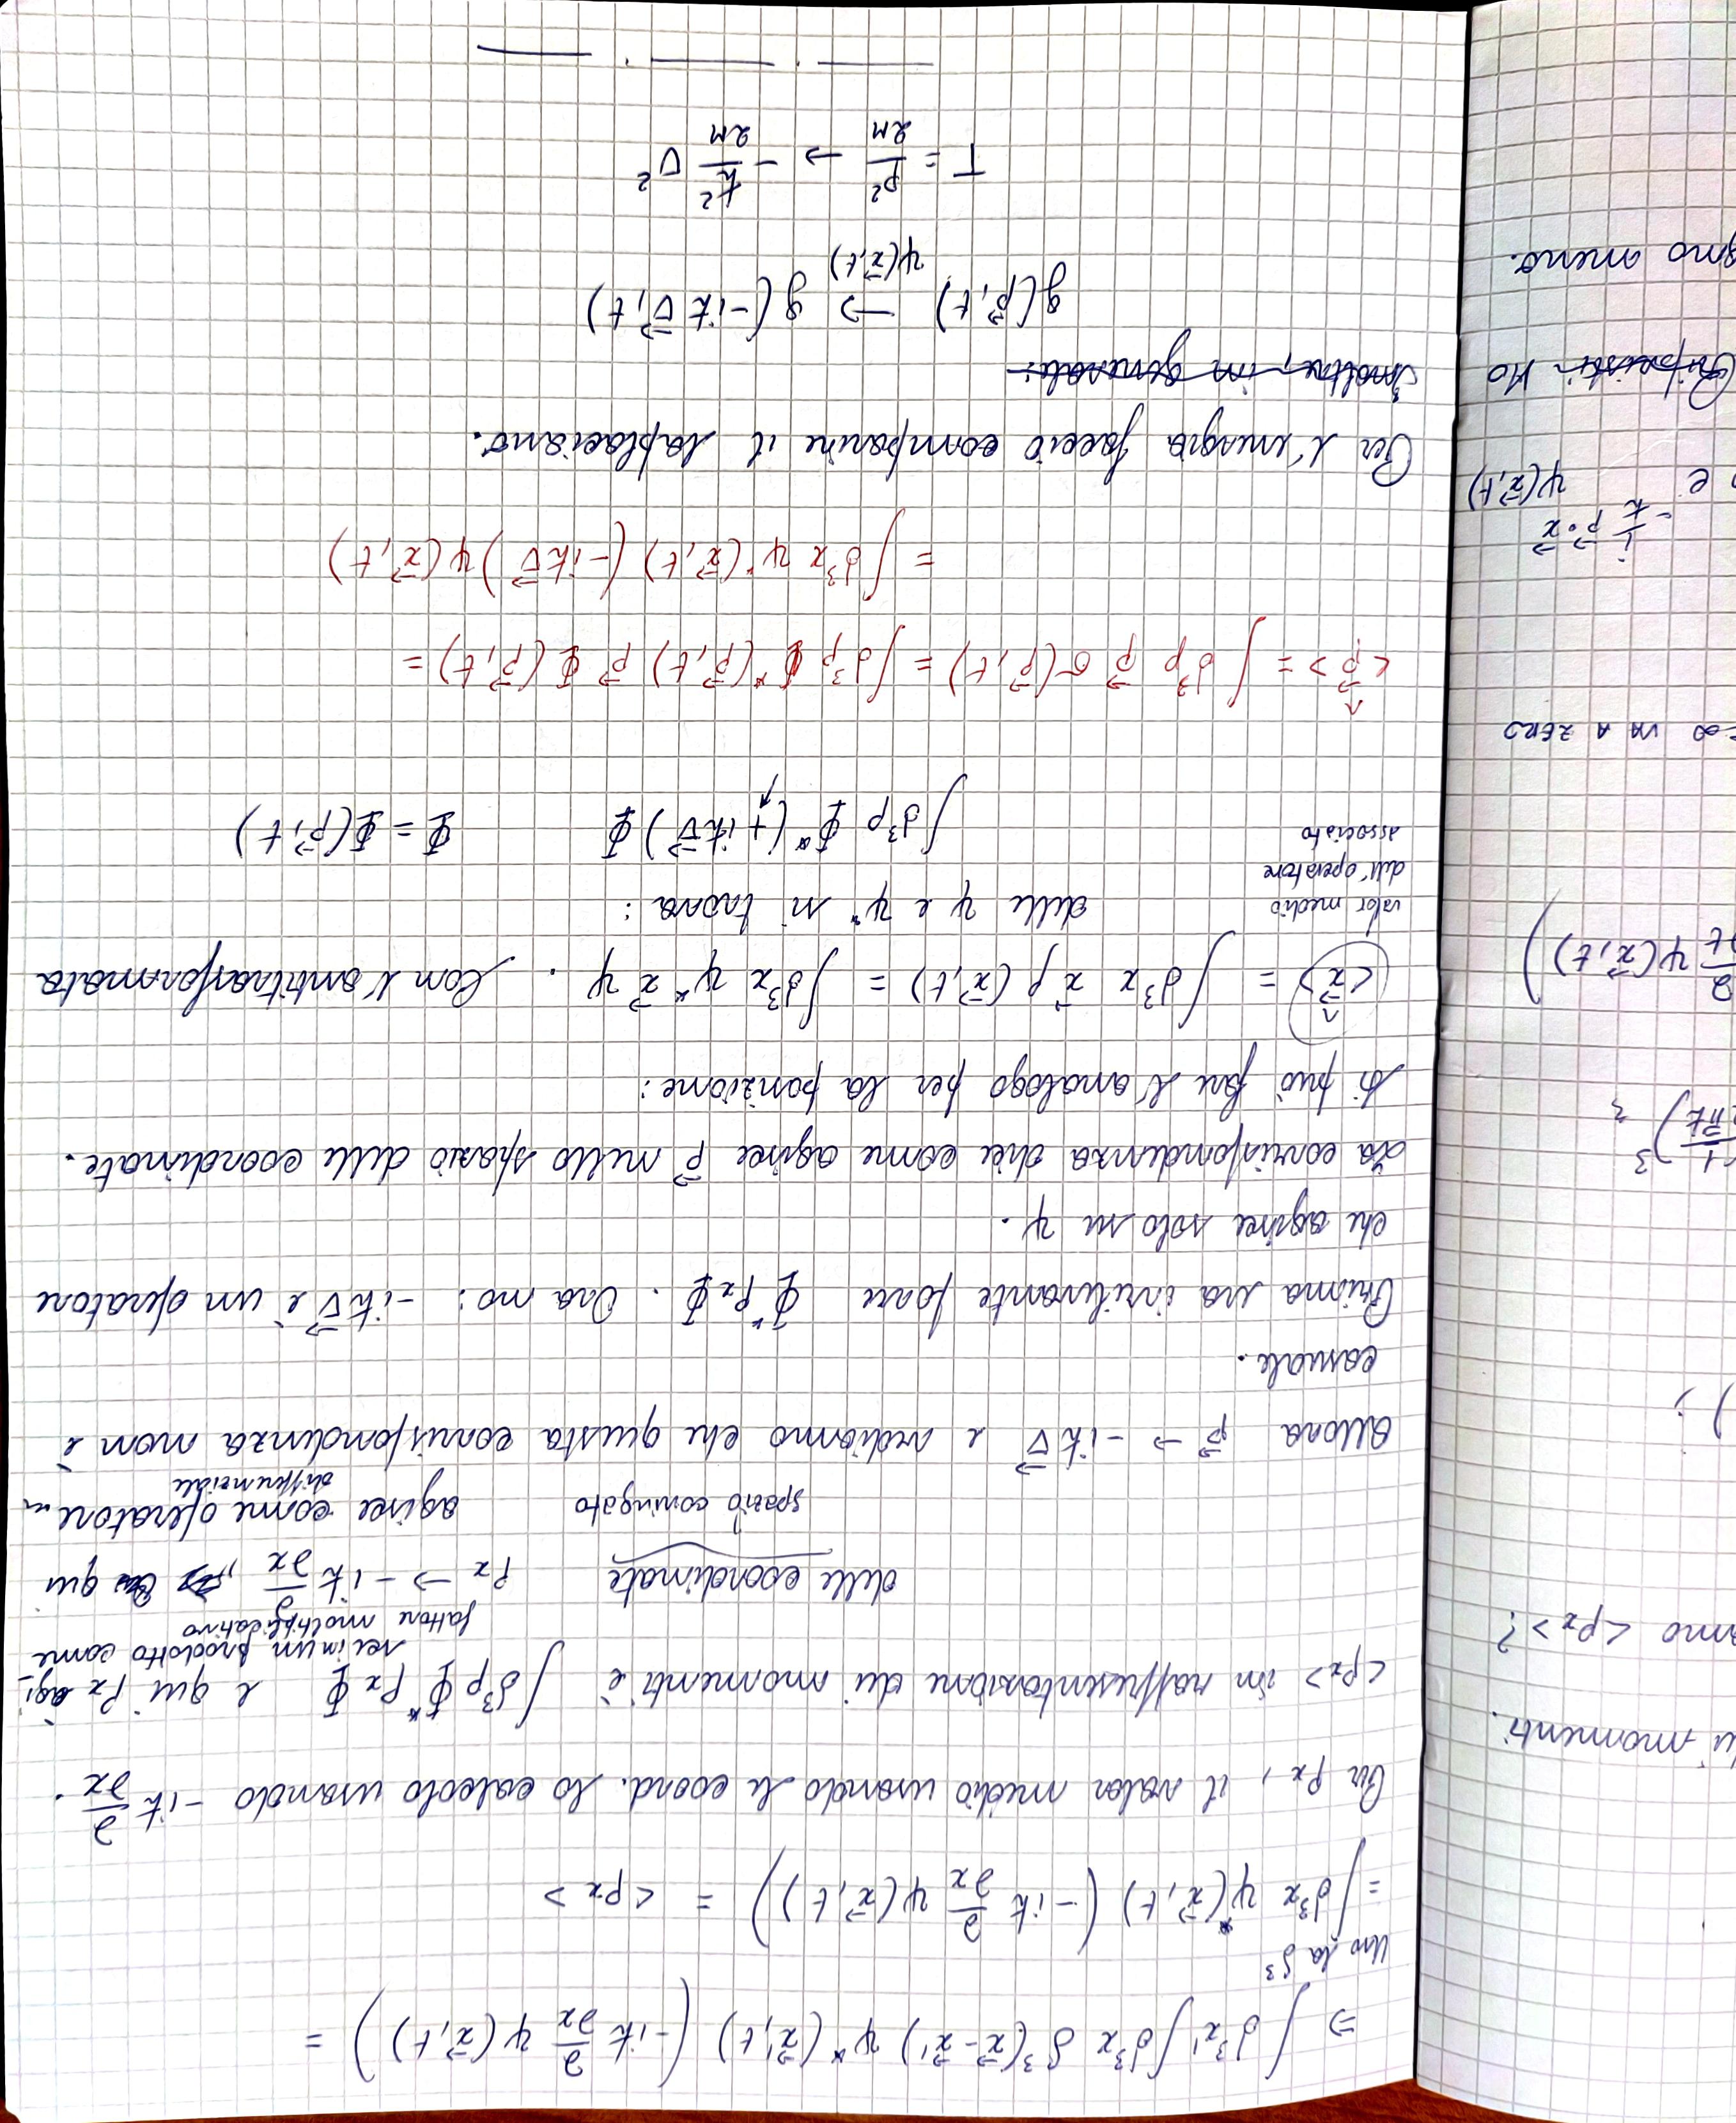 ⇒ ∫ d³x' ∫ d³x δ³(x⃗-x⃗') ψ*(x⃗',t) (-iħ ∂/∂x ψ(x⃗,t)) =
Uso la δ³
= ∫ d³x ψ*(x⃗,t) (-iħ ∂/∂x ψ(x⃗,t)) = <px>
Per px, il valor medio usando le coord. lo calcolo usando -iħ ∂/∂x.
<px> in rappresentazione dei momenti è ∫ d³p Φ* px Φ e qui px agi-
sce in un prodotto come
fattore moltiplicativo
delle coordinate px → -iħ ∂/∂x, qui
spazio coniugato agisce come operatore
differenziale
Allora p⃗ → -iħ∇⃗ e vediamo che questa corrispondenza non è
casuale.
Prima era irrilevante porre Φ* px Φ. Ora no: -iħ∇⃗ è un operatore
che agisce solo su ψ.
La corrispondenza dice come agisce p⃗ nello spazio delle coordinate.
Si può fare l'analogo per la posizione:
<x̂⃗> = ∫ d³x x⃗ ρ(x⃗,t) = ∫ d³x ψ* x⃗ ψ. Con l'antitrasformata
valor medio
dell'operatore
associato
delle ψ e ψ* si trova:
∫ d³p Φ* (+iħ∇⃗) Φ Φ = Φ(p⃗,t)
<p̂⃗> = ∫ d³p p⃗ σ(p⃗,t) = ∫ d³p Φ*(p⃗,t) p⃗ Φ(p⃗,t) =
= ∫ d³x ψ*(x⃗,t) (-iħ∇⃗) ψ(x⃗,t)
Per l'energia faccio comparire il laplaciano.
Inoltre, in generale:
g(p⃗,t) → g(-iħ∇⃗,t)
ψ(x⃗,t)
T = p²/2M → -ħ²/2M ∇²
momenti.
<px>?
) ;
)³
∂/∂t ψ(x⃗,t))
∞ VA A ZERO
e -i/ħ p⃗·x⃗ ψ(x⃗,t)
Ho
meno.